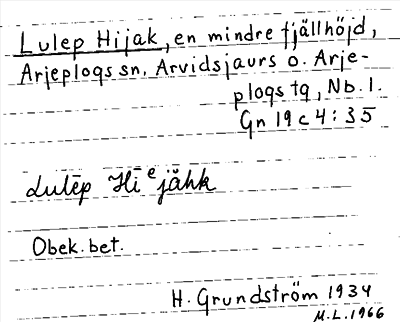 Lulep Hijak, en mindre fjällhöjd,
Arjeplogs sn. Arvidsjaurs o. Arje-
plogs tg, Nb. l.
Gn 19 c 4 : 35
Lulēp Hiᵉjåhk
Obek. bet.
H. Grundström 1934
M.L. 1966